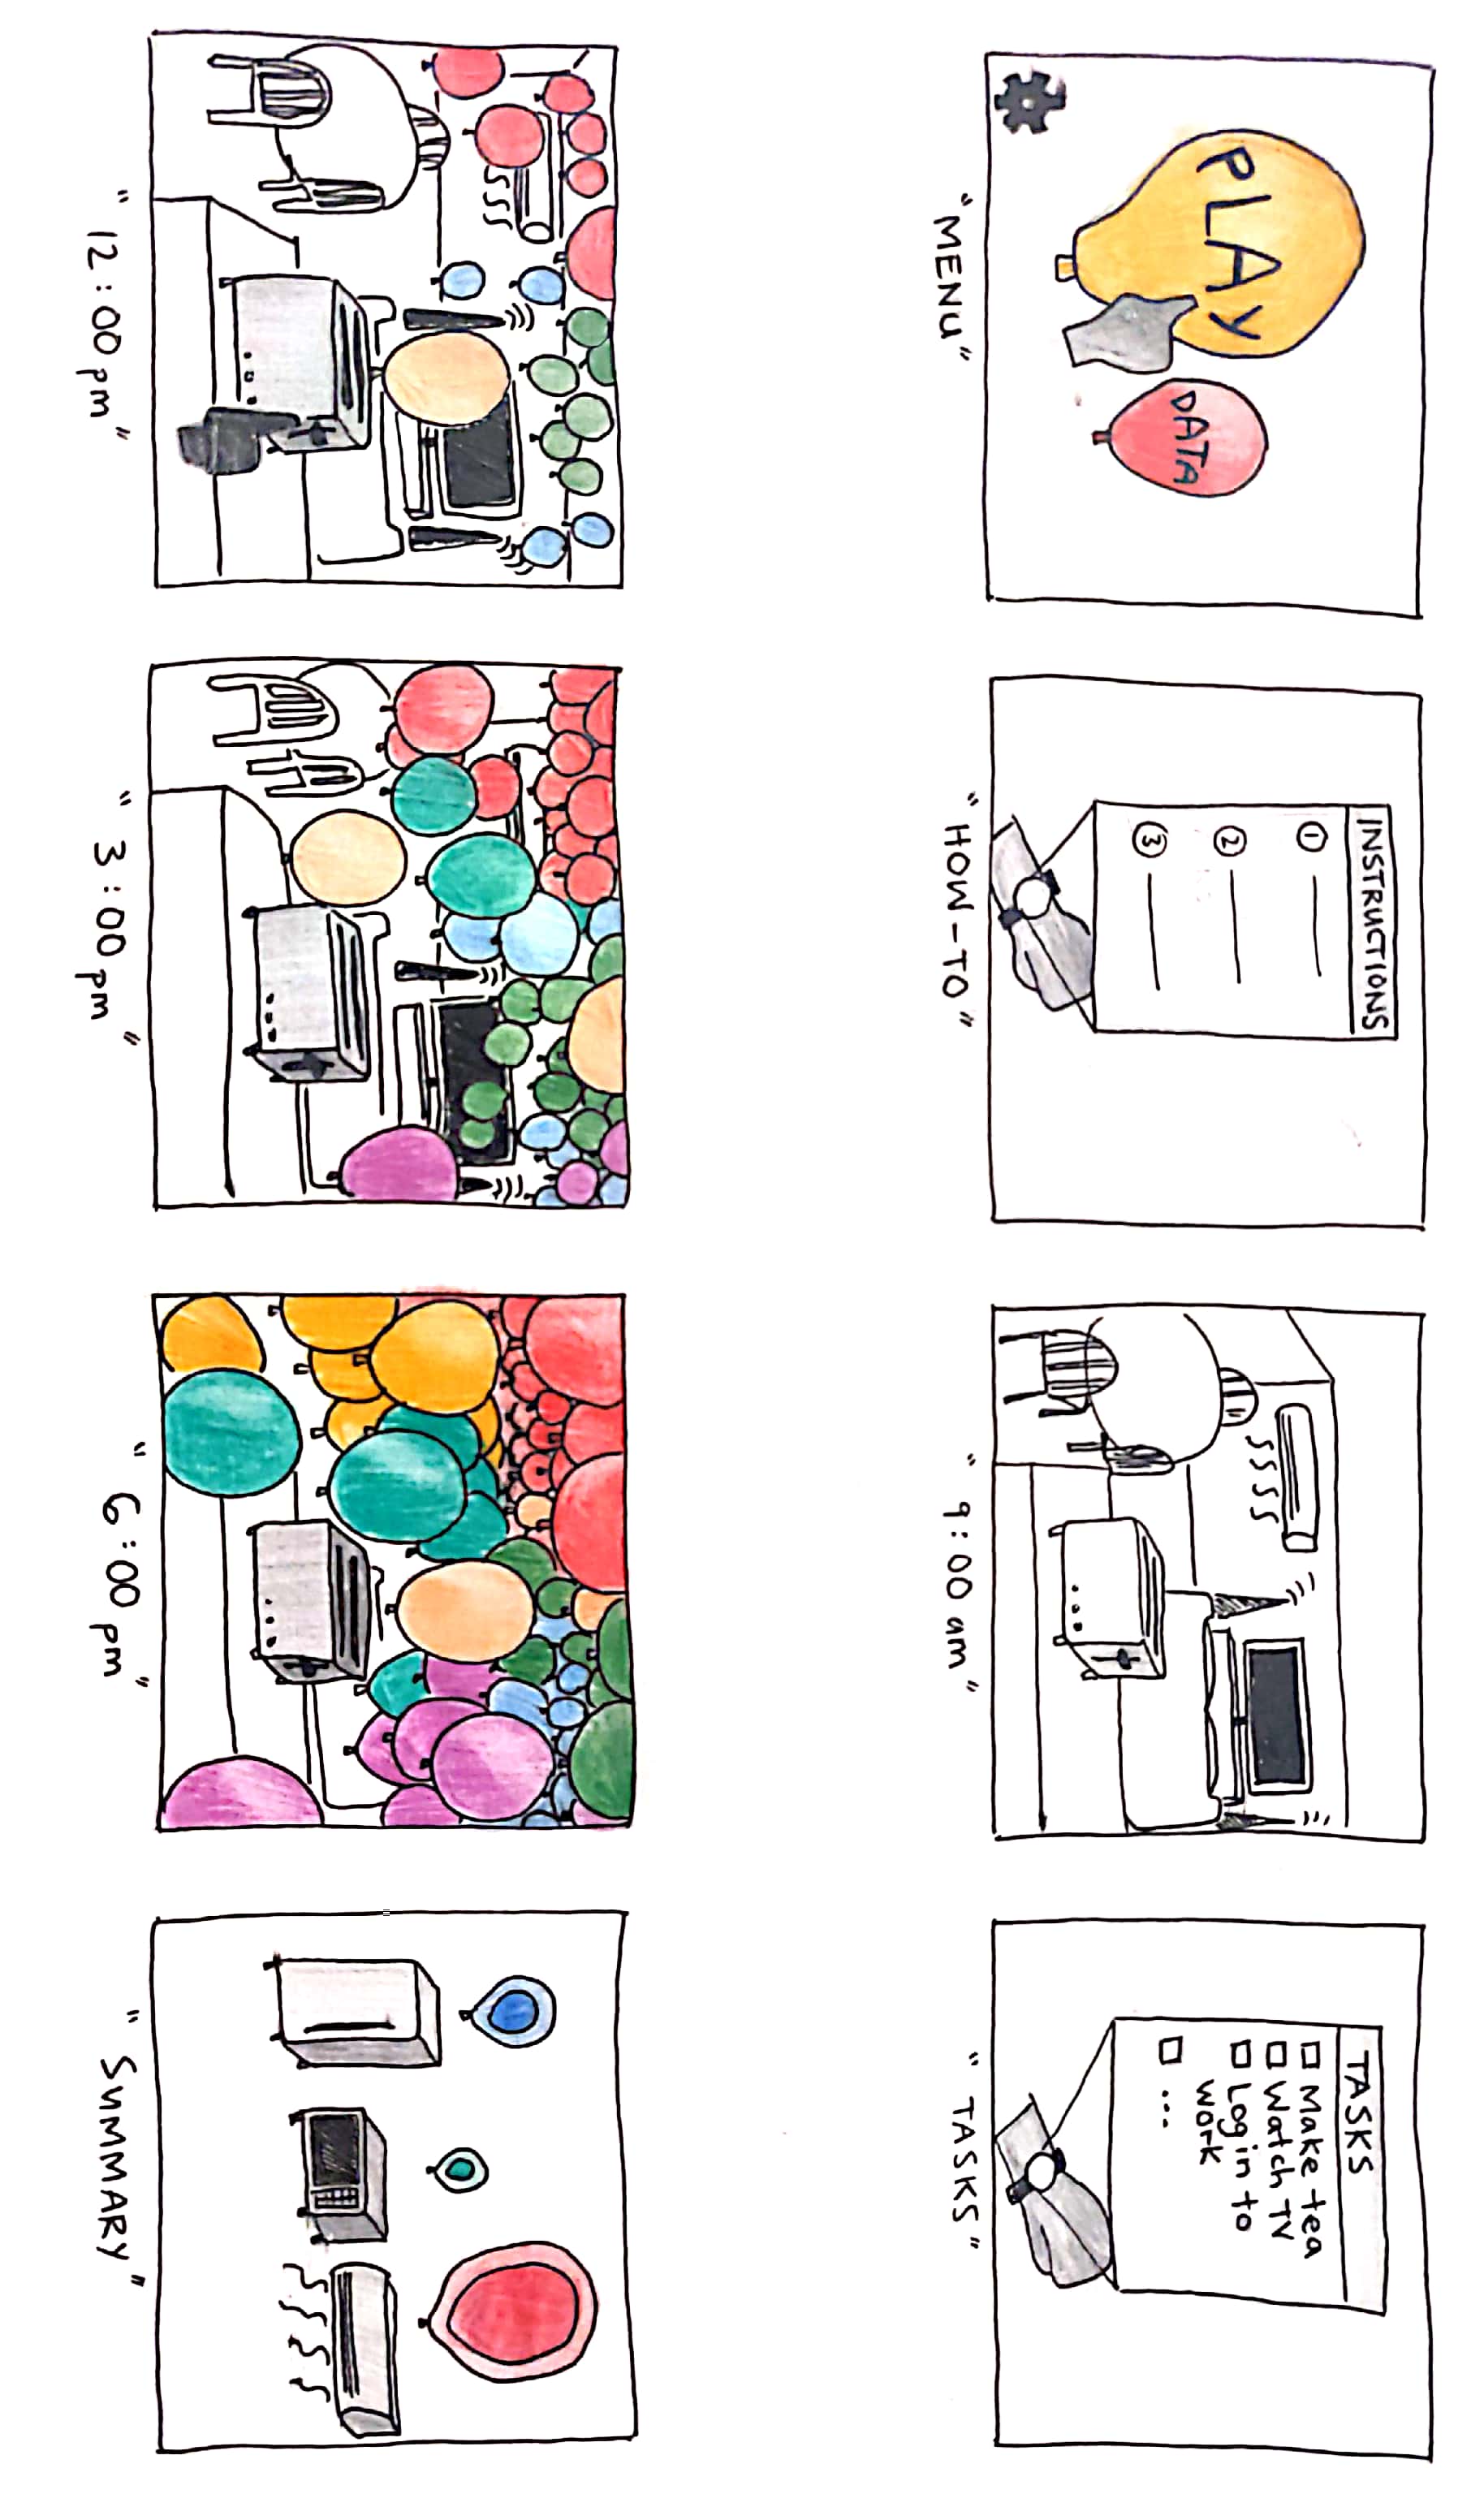 PLAY
DATA
"MENU"
INSTRUCTIONS
①
②
③
"HOW-TO"
"9:00 am"
TASKS
☐ Make tea
☐ Watch TV
☐ Log in to
work
☐ ...
"TASKS"
"12:00pm"
"3:00pm"
"6:00 pm"
"SUMMARY"